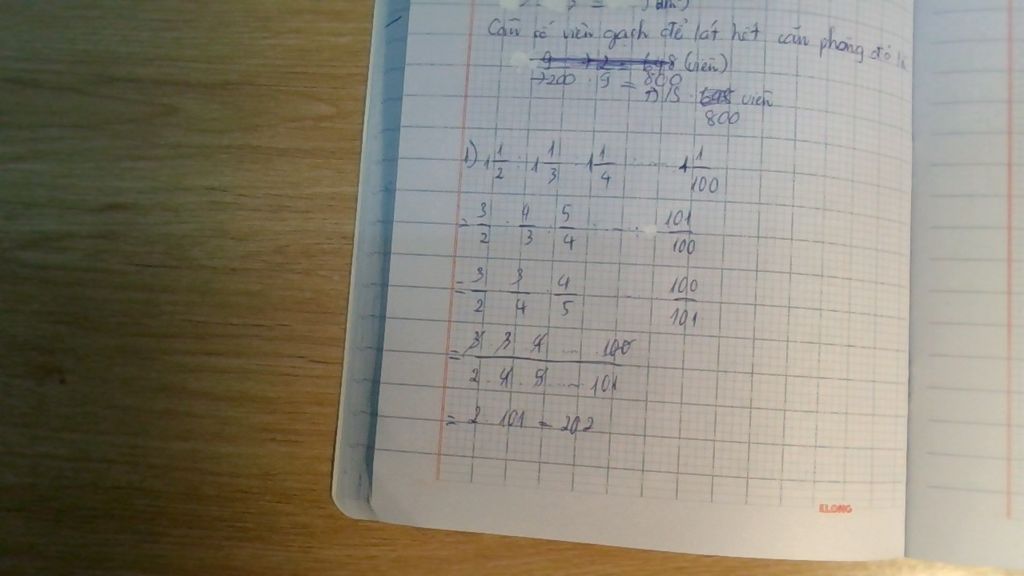 Cần số viên gạch để lát hết căn phòng đó là
9 → 2 = 648 (viên)
→200 . 9 = 800
Đ/S : 648 viên
800
1) 1 1/2 : 1 1/3 : 1 1/4 : ... : 1 1/100
= 3/2 : 4/3 : 5/4 : ... : 101/100
= 3/2 3/4 4/5 100/101
= 3 3 4 ... 100 / 2 . 4 . 5 ... 101
= 2 101 = 202
ELONG